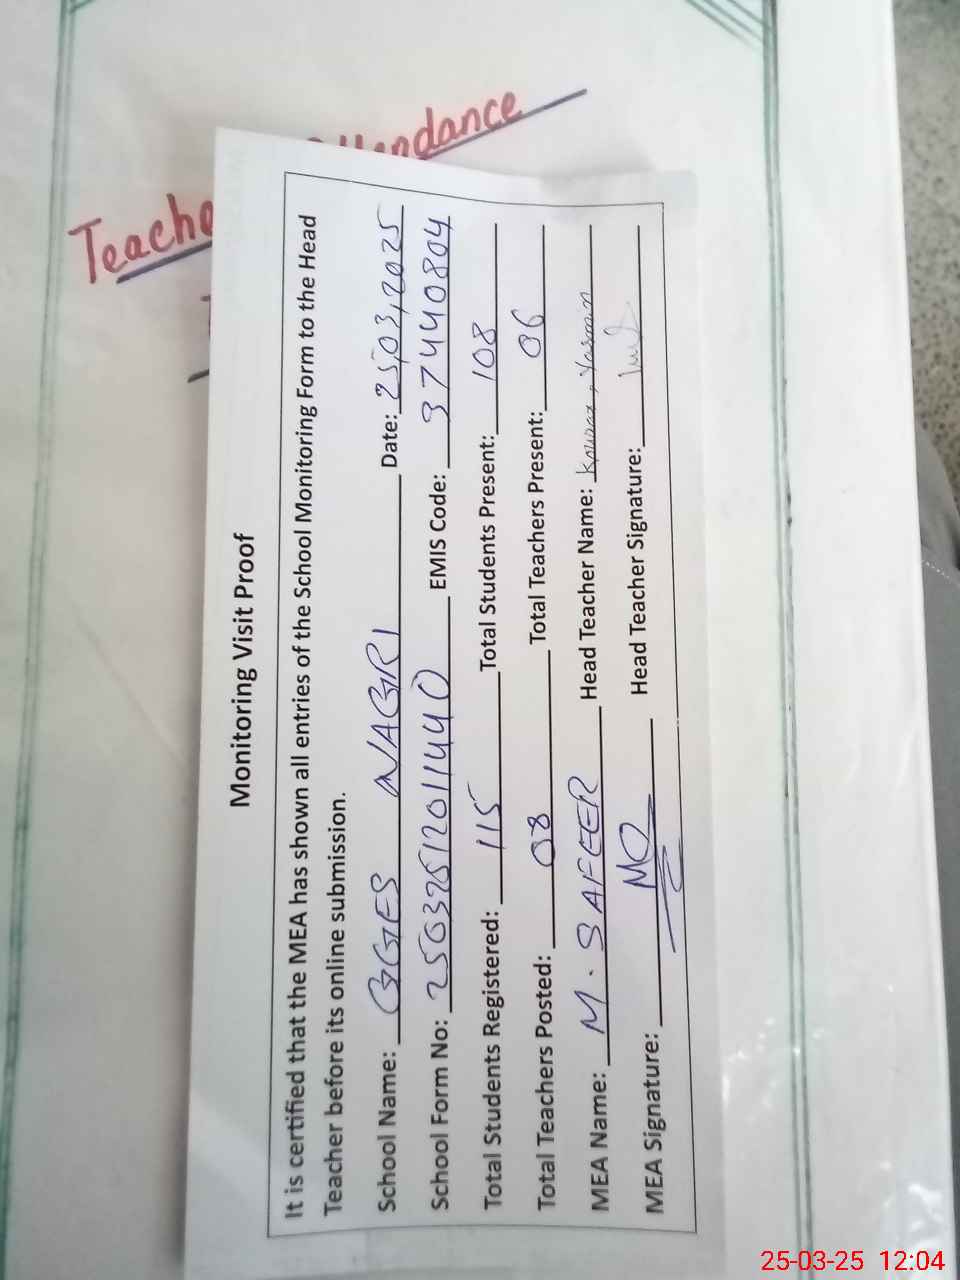 Teache Attendance
Monitoring Visit Proof
It is certified that the MEA has shown all entries of the School Monitoring Form to the Head
Teacher before its online submission.
School Name: GGES NAGRI Date: 25,03,2025
School Form No: 25032512011440 EMIS Code: 37440804
Total Students Registered: 115 Total Students Present: 108
Total Teachers Posted: 08 Total Teachers Present: 06
MEA Name: M. SAFEER Head Teacher Name: Yasman
MEA Signature: Head Teacher Signature:
25-03-25 12:04